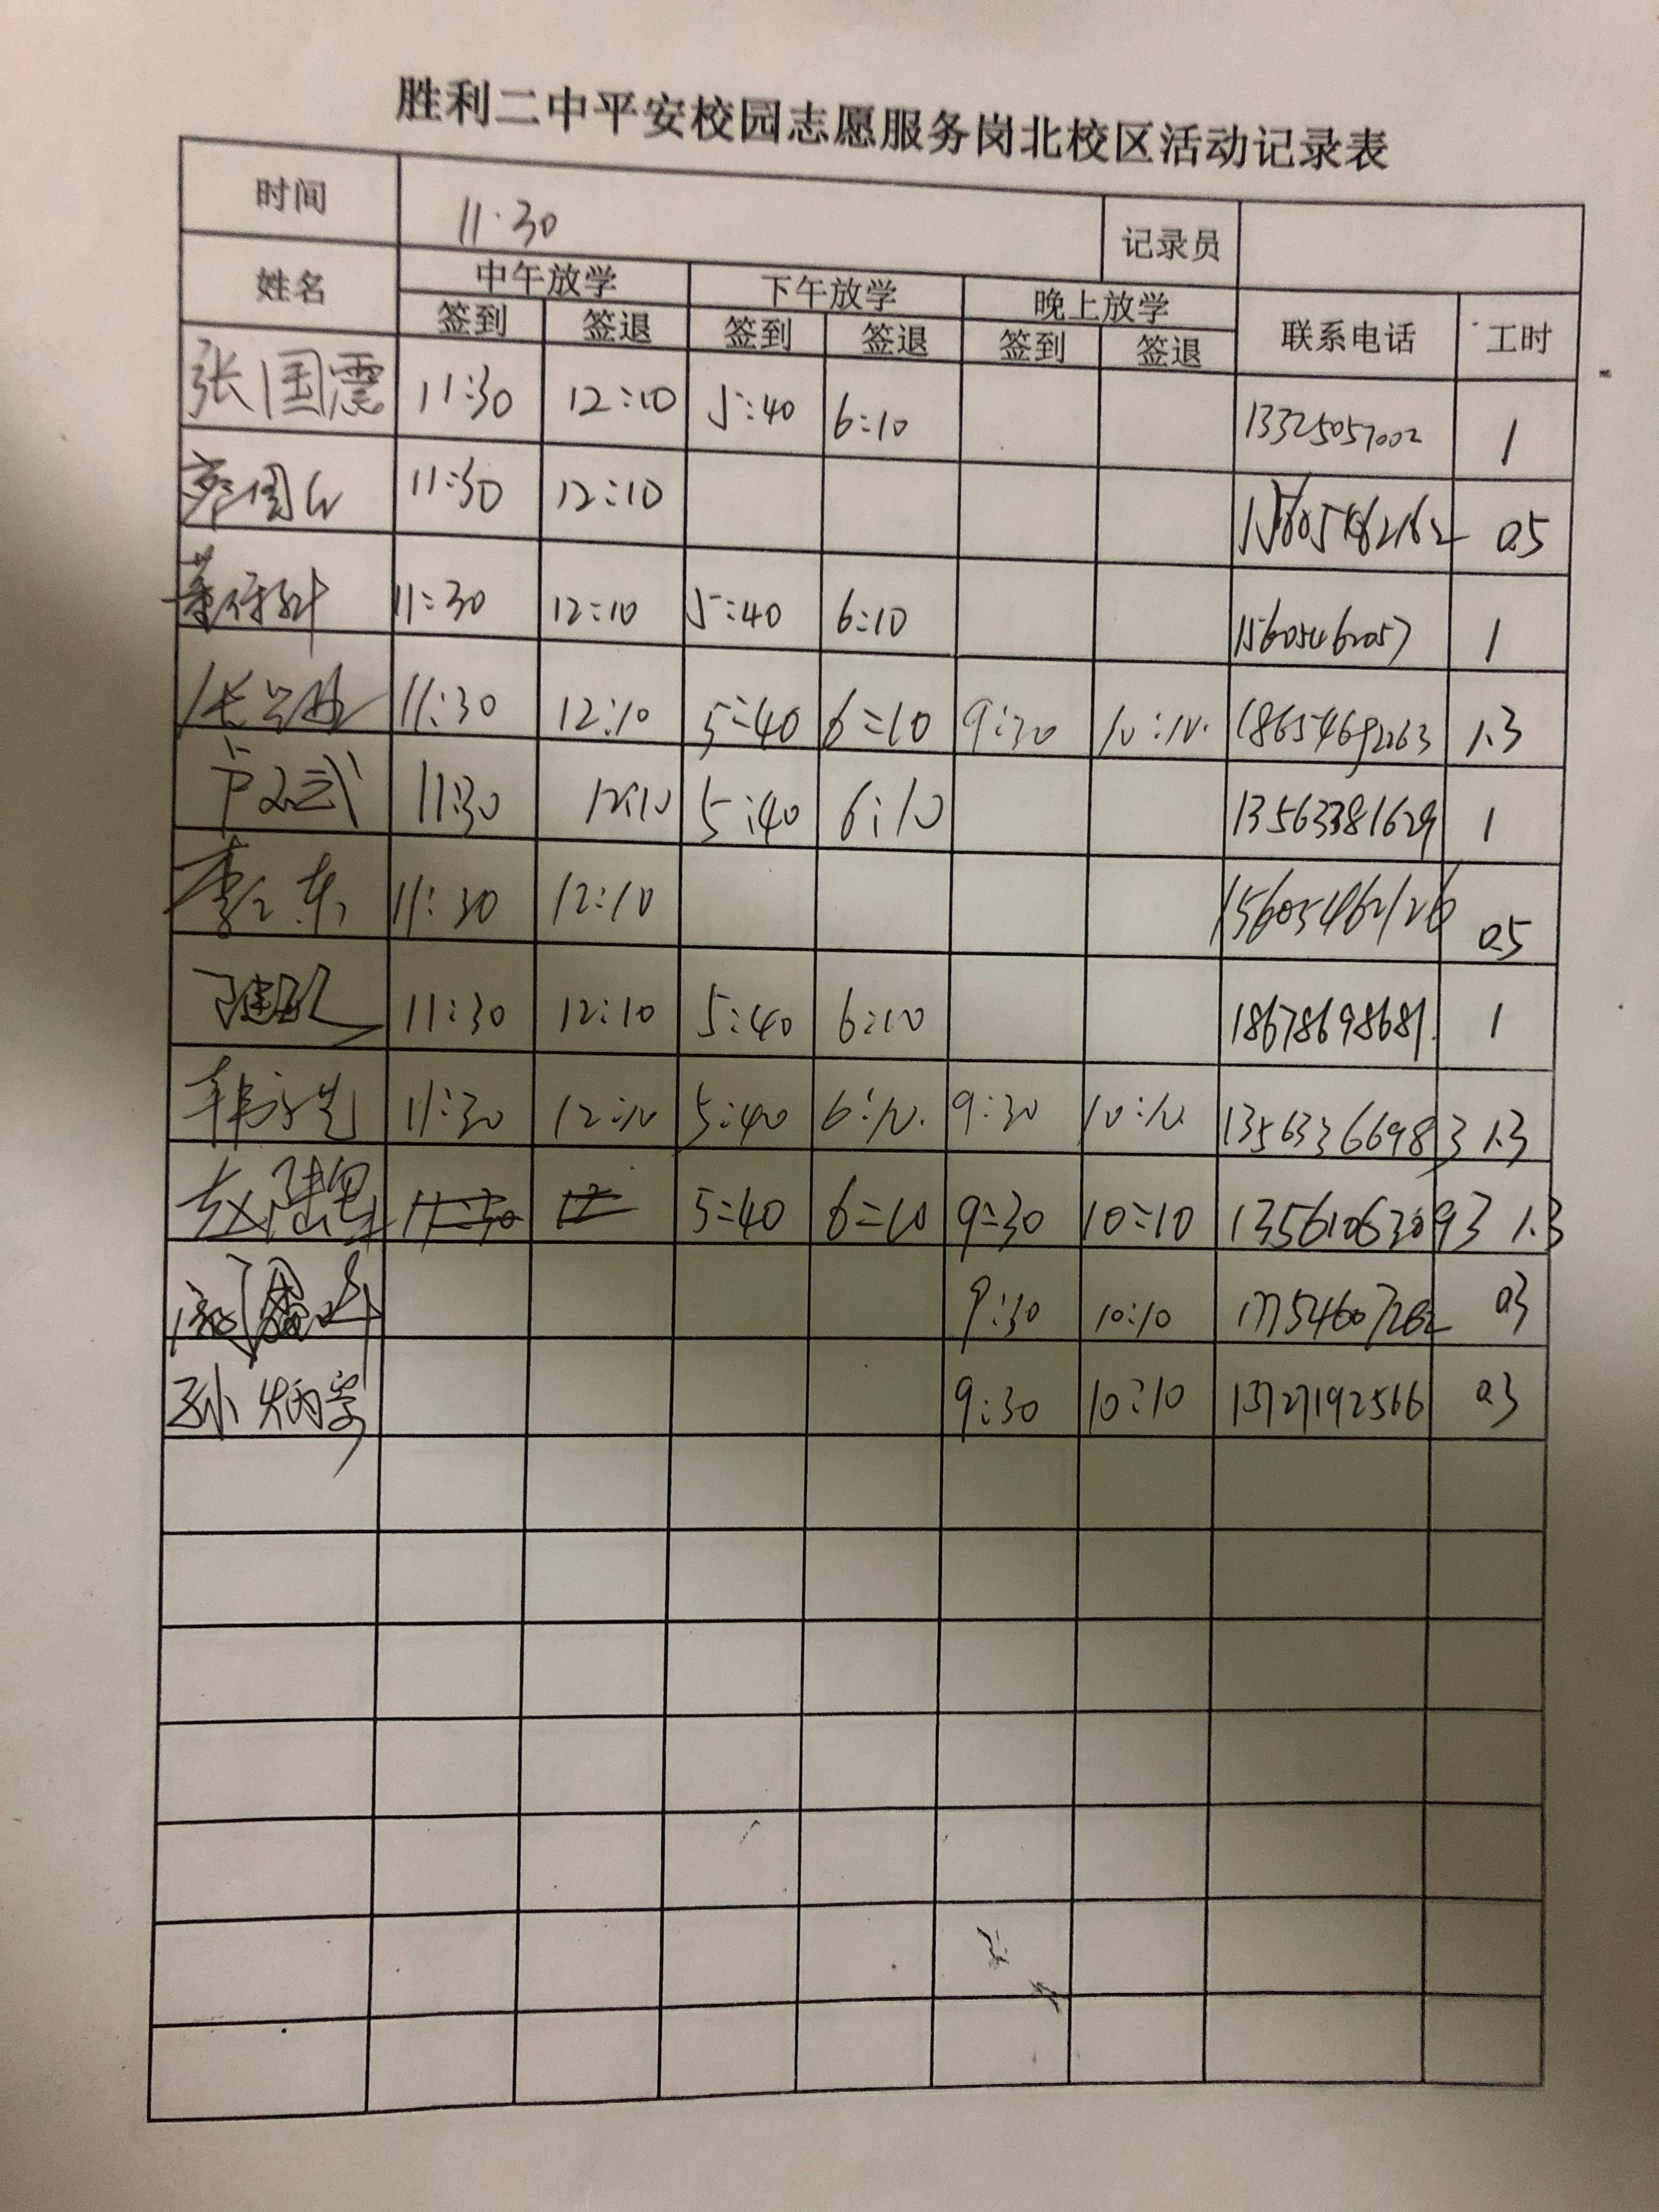 胜利二中平安校园志愿服务岗北校区活动记录表
时间 11.30 记录员
姓名 中午放学 下午放学 晚上放学 联系电话 工时
签到 签退 签到 签退 签到 签退
张国震 11:30 12:10 5:40 6:10 13325057002 1
11:30 12:10 0.5
11:30 12:10 5:40 6:10 15605462057 1
11:30 12:10 5:40 6:10 9:30 10:10. 1.3
卢文武 11:30 12:10 5:40 6:10 13563381629 1
11:30 12:10 15605462126 0.5
11:30 12:10 5:40 6:10 18678698681. 1
11:30 12:10 5:40 6:10. 9:30 10:10. 13563366983 1.3
5:40 6:10 9:30 10:10 13561063093 1.3
9:30 10:10 17754607262 0.3
孙炳 9:30 10:10 13727192566 0.3